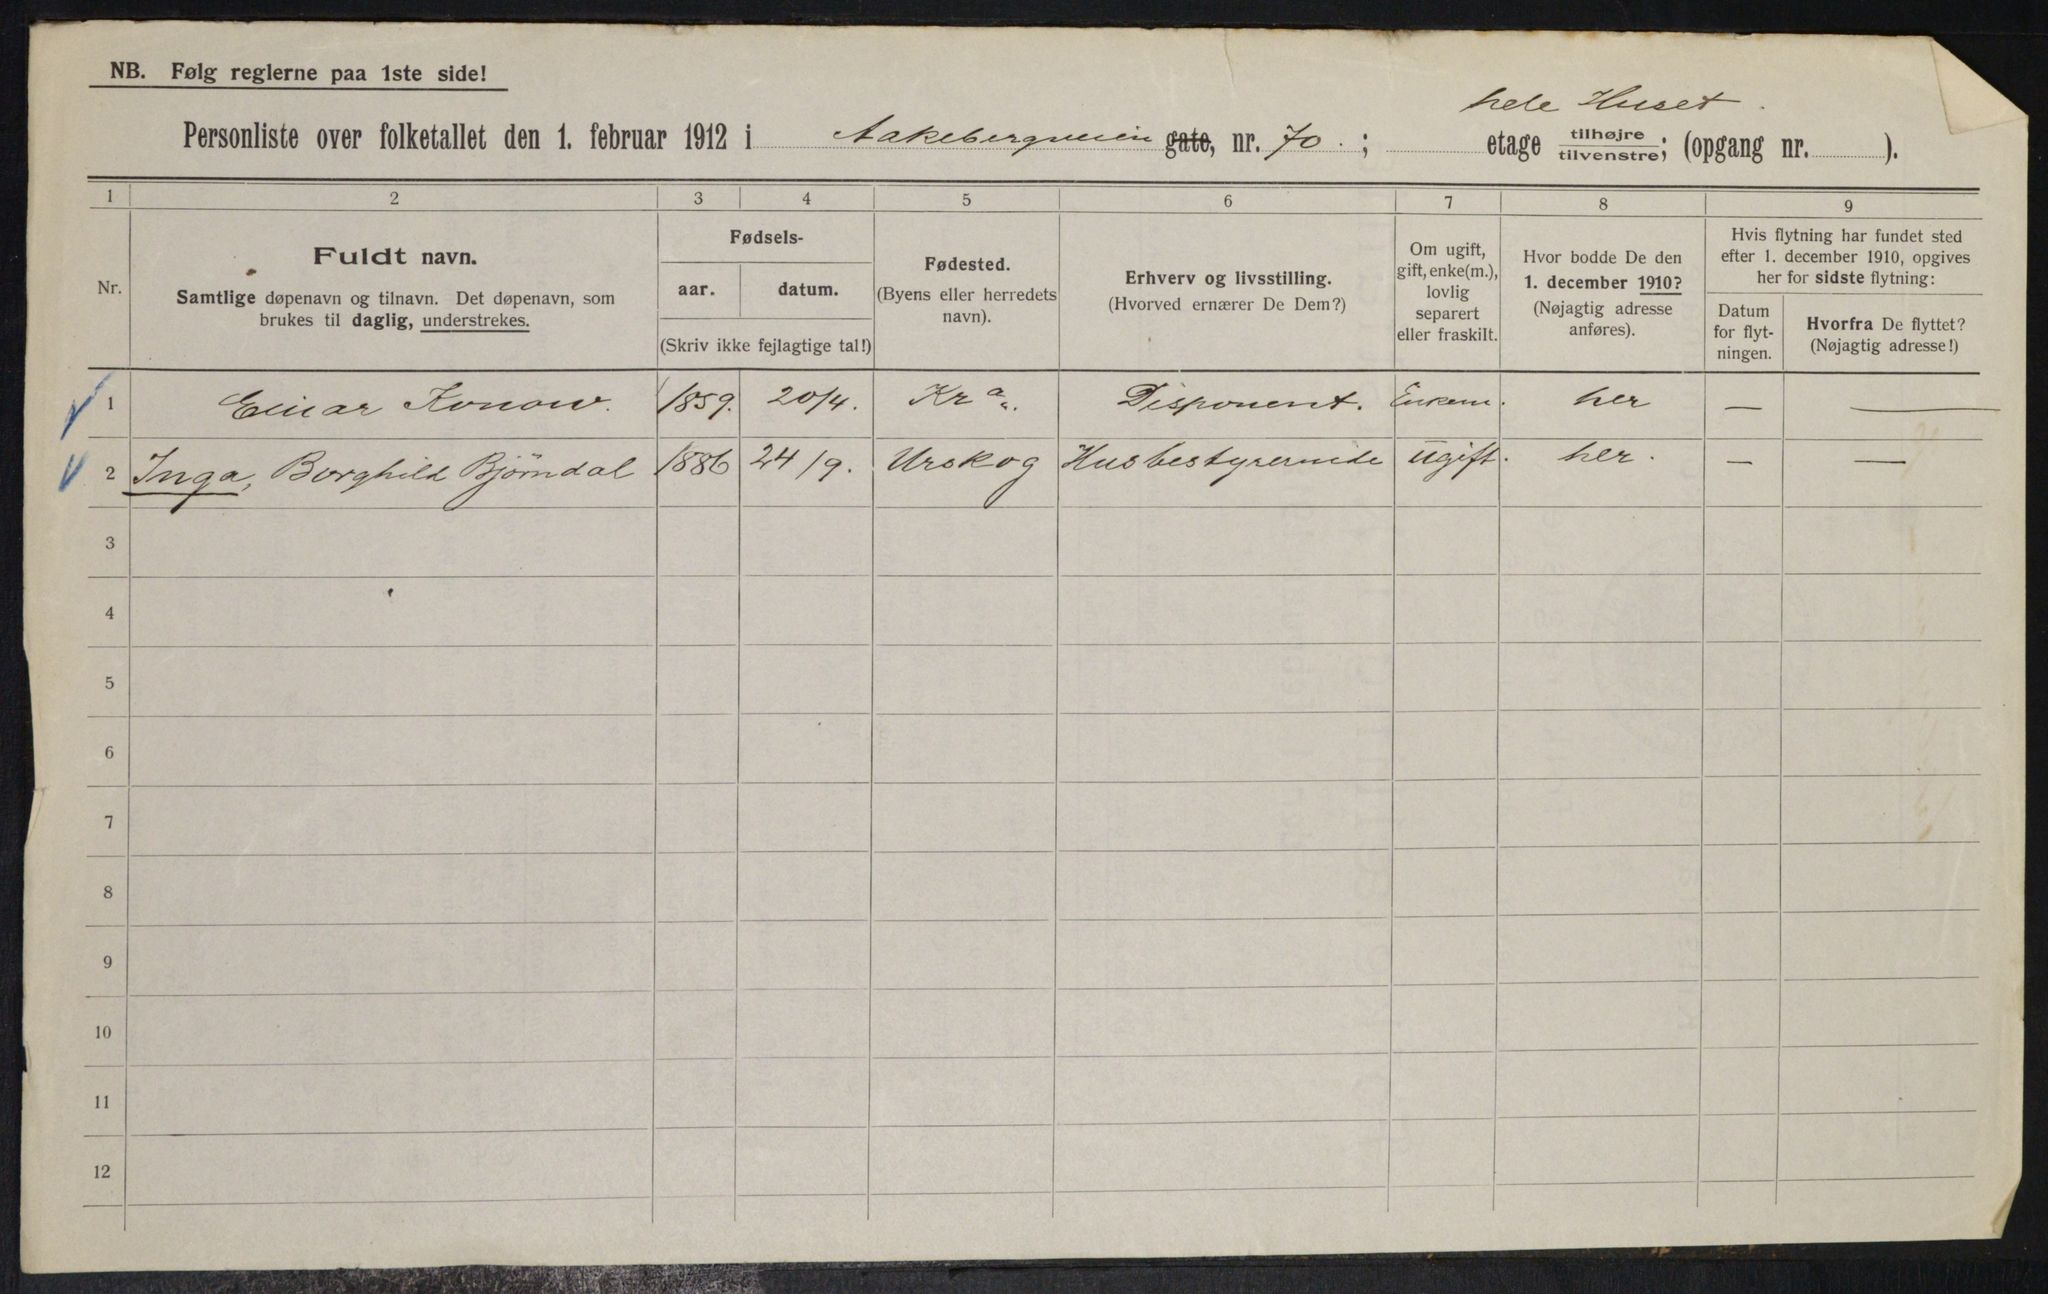 NB. Følg reglerne paa 1ste side!
hele Huset.
Personliste over folketallet den 1. februar 1912 i Aakebergveien gate, nr. 70. ; etage tilhøjre/tilvenstre; (opgang nr. ).
1 2 3 4 5 6 7 8 9
Nr.
Fuldt navn.
Samtlige døpenavn og tilnavn. Det døpenavn, som
brukes til daglig, understrekes.
Fødsels-
aar. datum.
(Skriv ikke fejlagtige tal!)
Fødested.
(Byens eller herredets
navn).
Erhverv og livsstilling.
(Hvorved ernærer De Dem?)
Om ugift,
gift, enke(m.),
lovlig
separert
eller fraskilt.
Hvor bodde De den
1. december 1910?
(Nøjagtig adresse
anføres).
Hvis flytning har fundet sted
efter 1. december 1910, opgives
her for sidste flytning:
Datum
for flyt-
ningen.
Hvorfra De flyttet?
(Nøjagtig adresse!)
1 Einar Konow. 1859. 20/4. Kra„. Disponent. Enkem. her — —
2 Inga, Borghild Bjørndal 1886 24/9. Urskog Husbestyrerinde ugift. her. — —
3
4
5
6
7
8
9
10
11
12